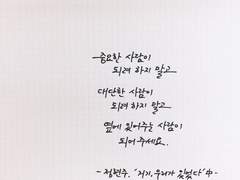 중요한 사람이
되려 하지 말고
대단한 사람이
되려 하지 말고
옆에 있어주는 사람이
되어 주세요.
- 정현주, '거기, 우리가 있었다' 中 -